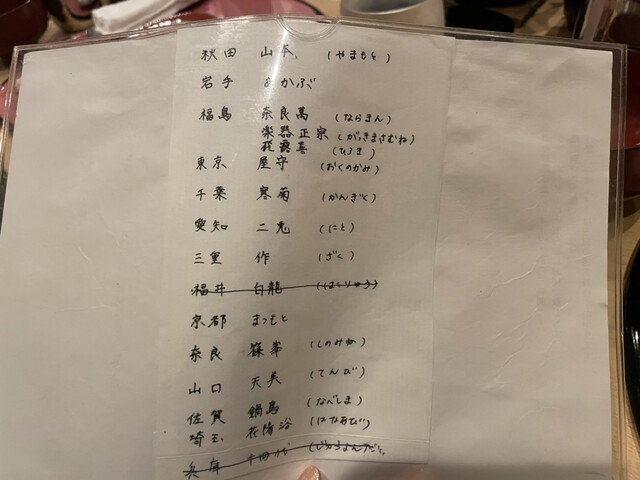 秋田 山本 (やまもと)
岩手 あかぶ
福島 奈良萬 (ならまん)
楽器正宗 (がっきまさむね)
飛露喜 (ひろき)
東京 屋守 (おくのかみ)
千葉 寒菊 (かんぎく)
愛知 二兎 (にと)
三重 作 (ざく)
福井 白龍 (はくりゅう)
京都 まつもと
奈良 篠峯 (しのみね)
山口 天美 (てんび)
佐賀 鍋島 (なべしま)
埼玉 花陽浴 (はなあび)
兵庫 十四代